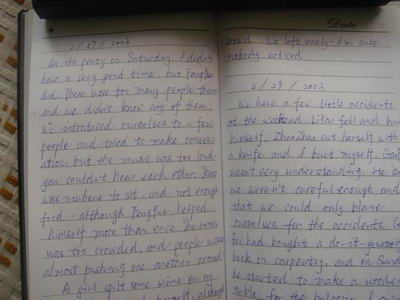 2/27/2003
At the party on Saturday I didn't
have a very good time, but FengTao
did. There were too many people there
and we didn't know any of them.
We introduced ourselves to a few
people and tried to make conver
sation, but the music was too loud
you couldn't hear each other. There
was nowhere to sit and not enough
food - although FengTao helped
himself more than once. The
was too crowded, and people were
almost pushing one another around
A girl spilt some wine on my
although
Date
stand. We left early - I'm sure
nobody noticed.
2/29/2003
We have a few little accidents
at the weekend. Litao fell and hurt
himself, ZhaoZhao cut herself with
a knife and I burt myself.
wasn't very understanding. He said
we weren't careful enough and
that we could only blame
ourselves for the accidents.
had bought a do-it-yourself
book on carpentry, and on Sunday
he started to make a wooden
table for the